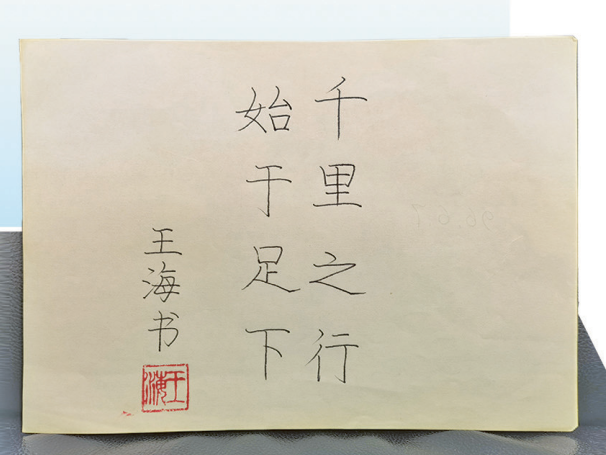 千里之行
始于足下
王海书
王海